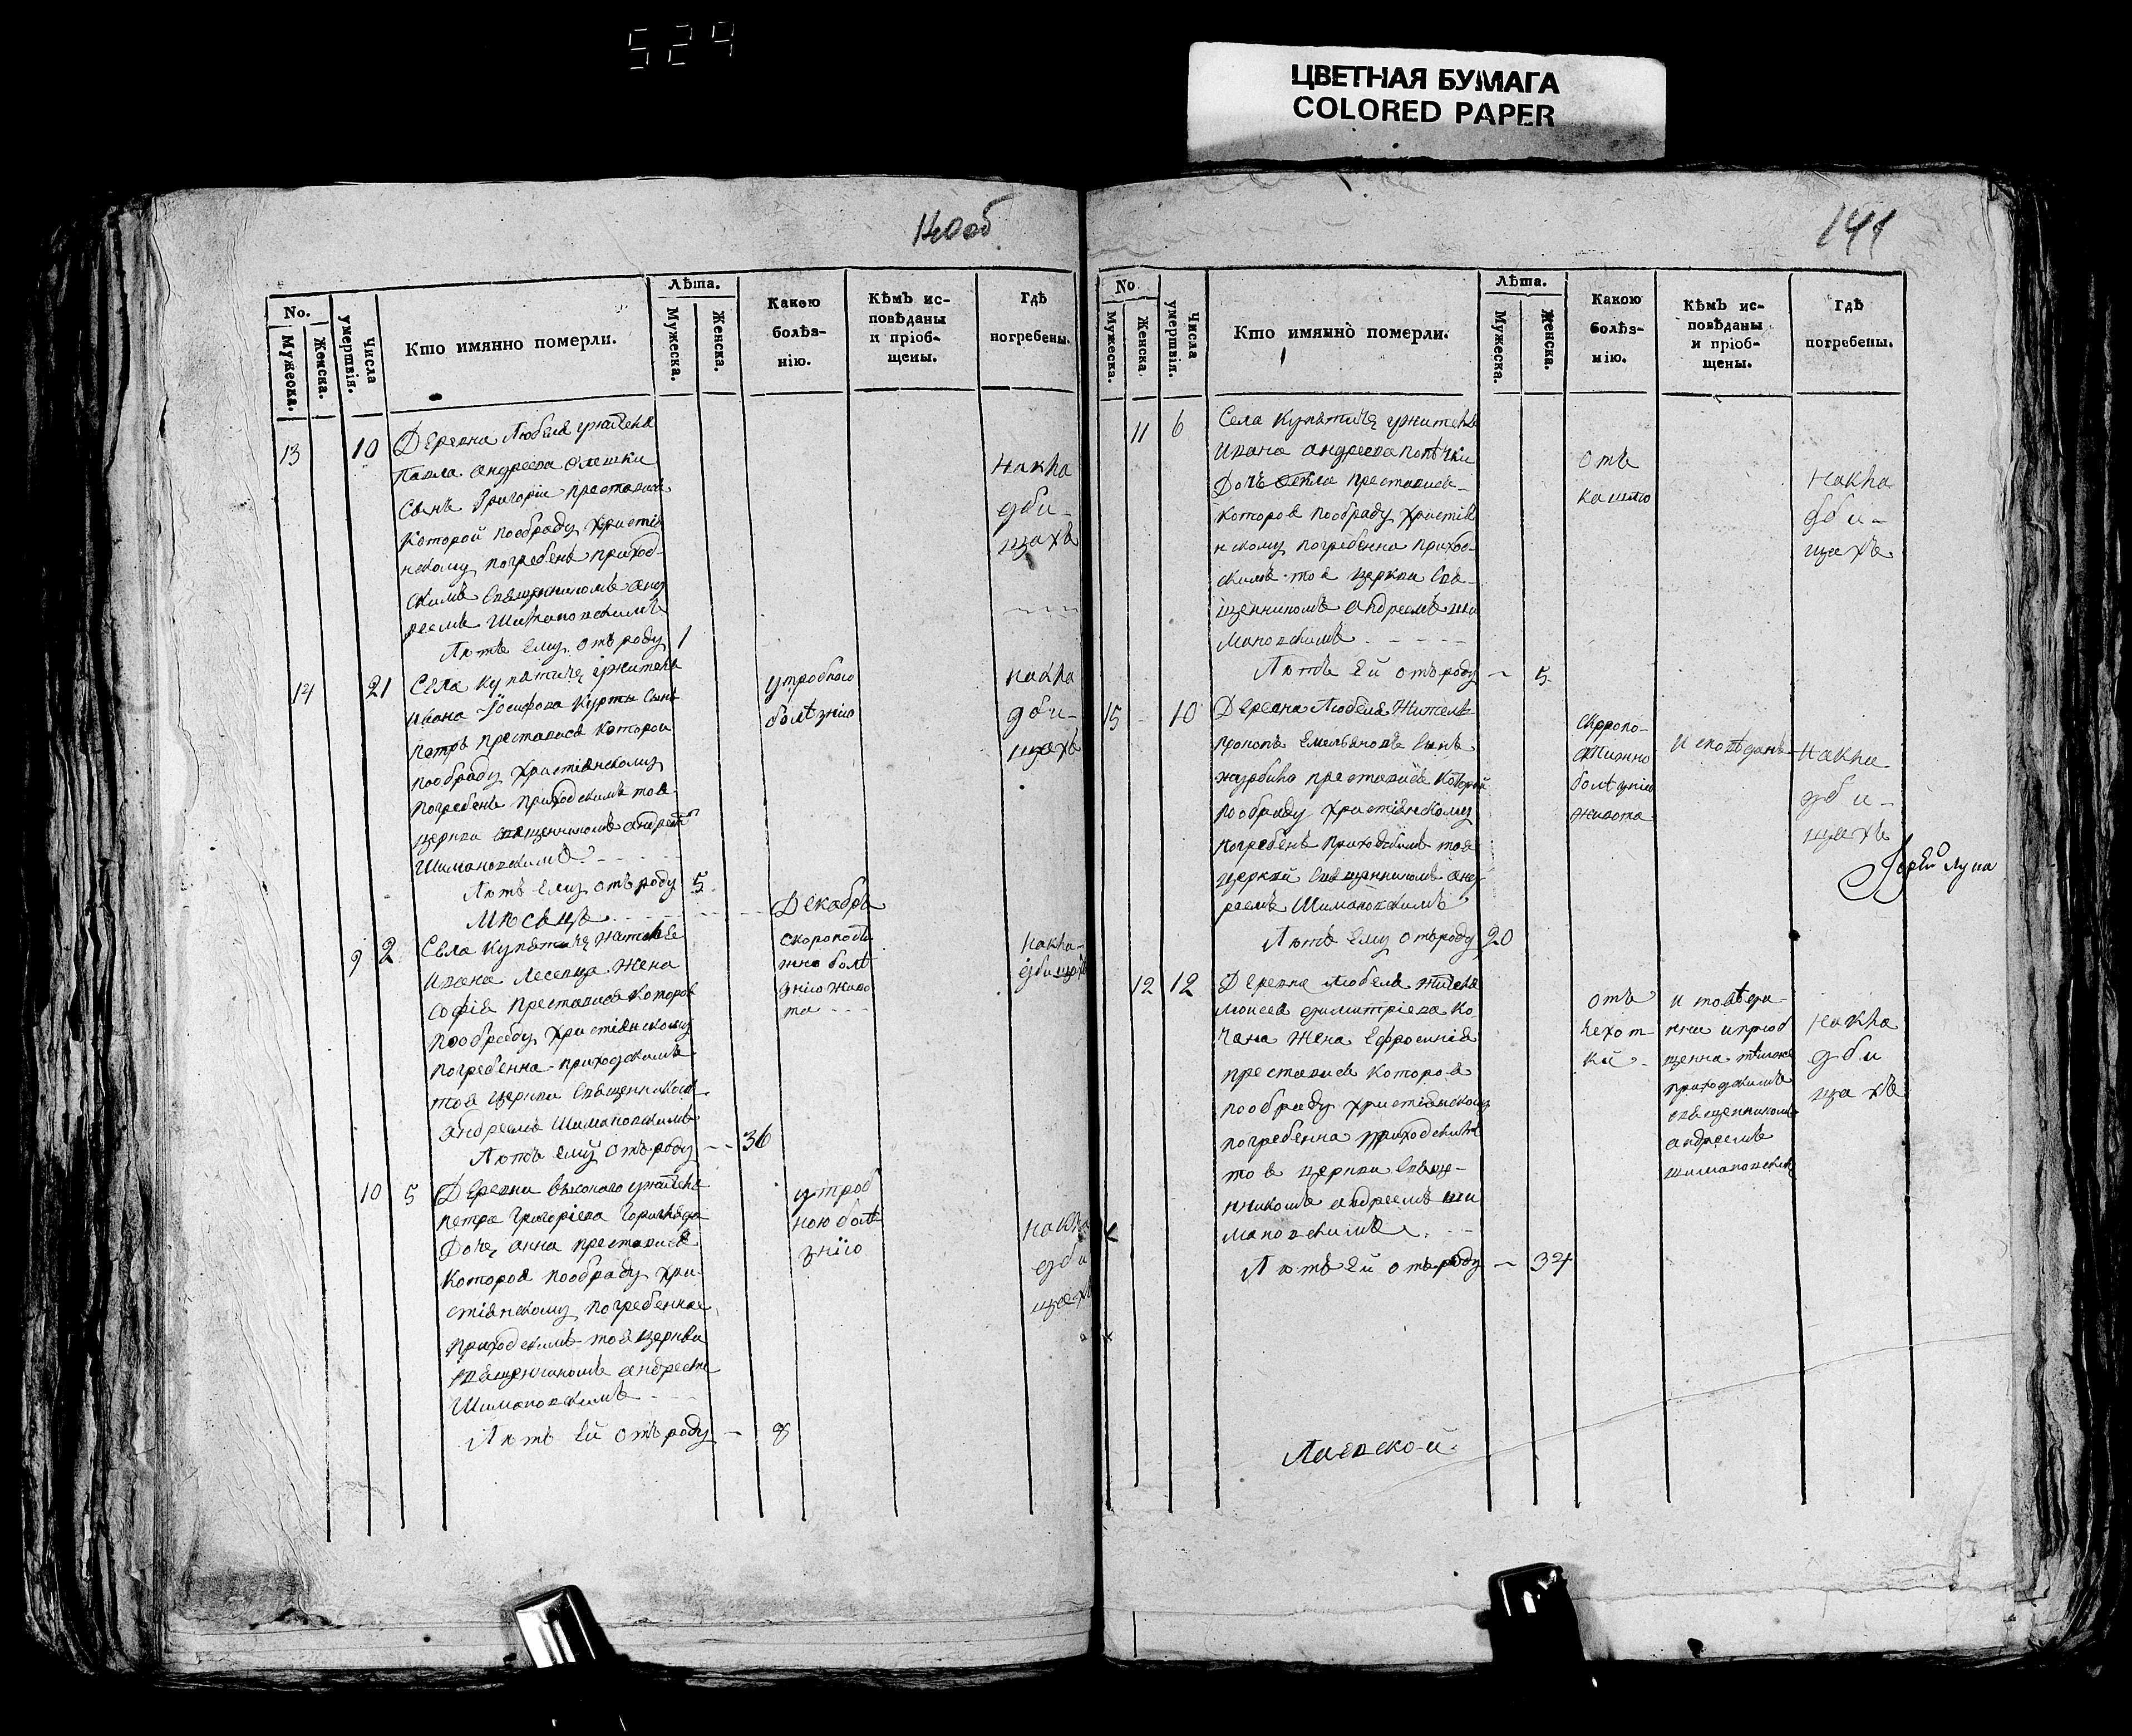 524
ЦВЕТНАЯ БУМАГА
COLORED PAPER
140об
No.
Мужеска.
Женска.
Числа умершвія.
Кто имянно померли.
Лѣта.
Мужеска.
Женска.
Какою болѣз-
нію.
Кѣмъ ис-
повѣданы
и пріоб-
щены.
Гдѣ
погребены.
13 10 Деревна Любеля жителя
Павла Андреева
Сынъ Григорій преставися
Которой пообряду христія
нскому погребенъ приход-
скимъ Священникомъ анд
реемъ Шимановскимъ
Лѣтъ ему отъ роду 1
на кла
дби-
щахъ
14 21 Села Купятичъ жителя
Ивана Іосифова Сынъ
Петръ преставися которои
пообряду христіянскому
погребенъ приходскимъ тоя
церкви священникомъ андреемъ
Шимановскимъ
Лѣтъ ему отъ роду 5
утробною
болѣзнію
на кла
дби-
щахъ
Мѣсяцъ Декабръ
9 2 Села Купятичъ жителя
Ивана Жена
Софія преставися которая
пообряду христіянскому
погребенна приходскимъ
тоя церкви Священникомъ
андреемъ Шимановскимъ
Лѣтъ ему отъ роду — 36
скоропости
жно болѣ
знію живо
та
на кла-
дбищахъ
10 5 Деревни Высокого жителя
Петра Григоріева
Дочь анна преставися
Которая пообряду хри
стіянскому погребенная
приходскимъ тоя церкви
священникомъ андреемъ
Шимановскимъ
Лѣтъ ей отъ роду — 8
утроб
ною болѣ
знію
на кла
дби
щахъ
141
No
Мужеска.
Женска.
Числа умершвія.
Кто имянно померли.
Лѣта.
Мужеска.
Женска.
Какою
болѣз-
нію.
Кѣмъ ис-
повѣданы
и пріоб-
щены.
Гдѣ
погребены.
11 6 Села Купятичъ жителя
Ивана андреева
Дочь Фекла преставися
которая пообряду христія
нскому погребенна приход-
скимъ тоя церкви Свя-
щенникомъ андреемъ ши
мановскимъ
Лѣтъ ей отъ роду — 5
отъ
кашлю
на кла
дби-
щахъ
15 10 Деревна Любеля Житель
Прокопъ Емельяновъ Сынъ
преставися который
пообряду христіянскому
погребенъ приходскимъ тоя
церкви священникомъ анд
реемъ Шимановскимъ
Лѣтъ ему отъ роду 20
скоропо-
стижно
болѣзнію
живота
исповѣданъ
на кла
дби-
щахъ
12 12 Деревне Любеля жителя
Моисея Димитріева Ко
чана Жена Ефросинія
преставися которая
пообряду христіянскому
погребенна приходскимъ
тоя церкви Свящ-
нникомъ андреемъ ши
мановскимъ
Лѣтъ ей отъ роду — 34
отъ
чехот-
ки
исповѣда-
нна и пріоб
щенна
приходскимъ
священникомъ
андреемъ
шимановскимъ
на кла
дби
щахъ